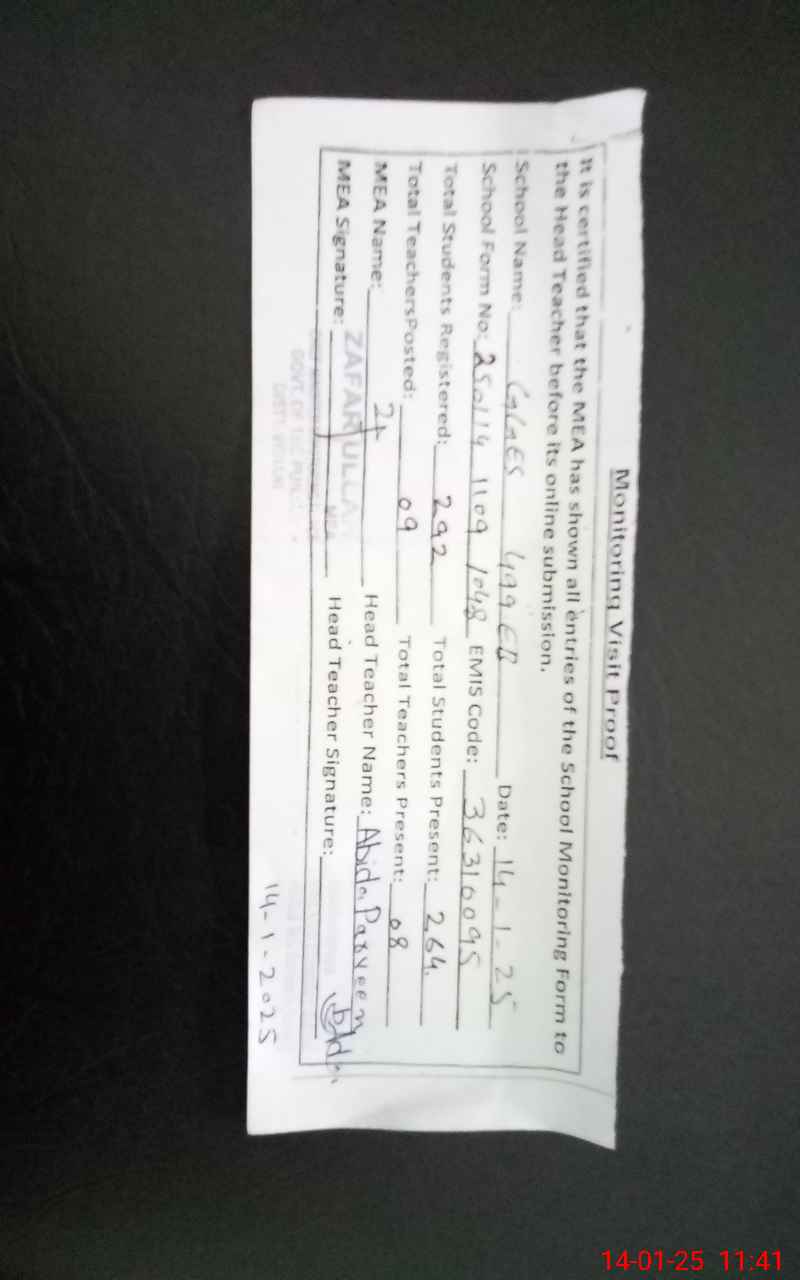 Monitoring Visit Proof
It is certified that the MEA has shown all entries of the School Monitoring Form to
the Head Teacher before its online submission.
School Name: GGES 499 EB Date: 14-1-25
School Form No: 250114 1109 1048 EMIS Code: 36310095
Total Students Registered: 292 Total Students Present: 264.
Total TeachersPosted: 09 Total Teachers Present: 08
MEA Name: Head Teacher Name: Abida Parveen
MEA Signature: Head Teacher Signature:
ZAFAR ULLAH
MEA
14-1-2025
14-01-25 11:41